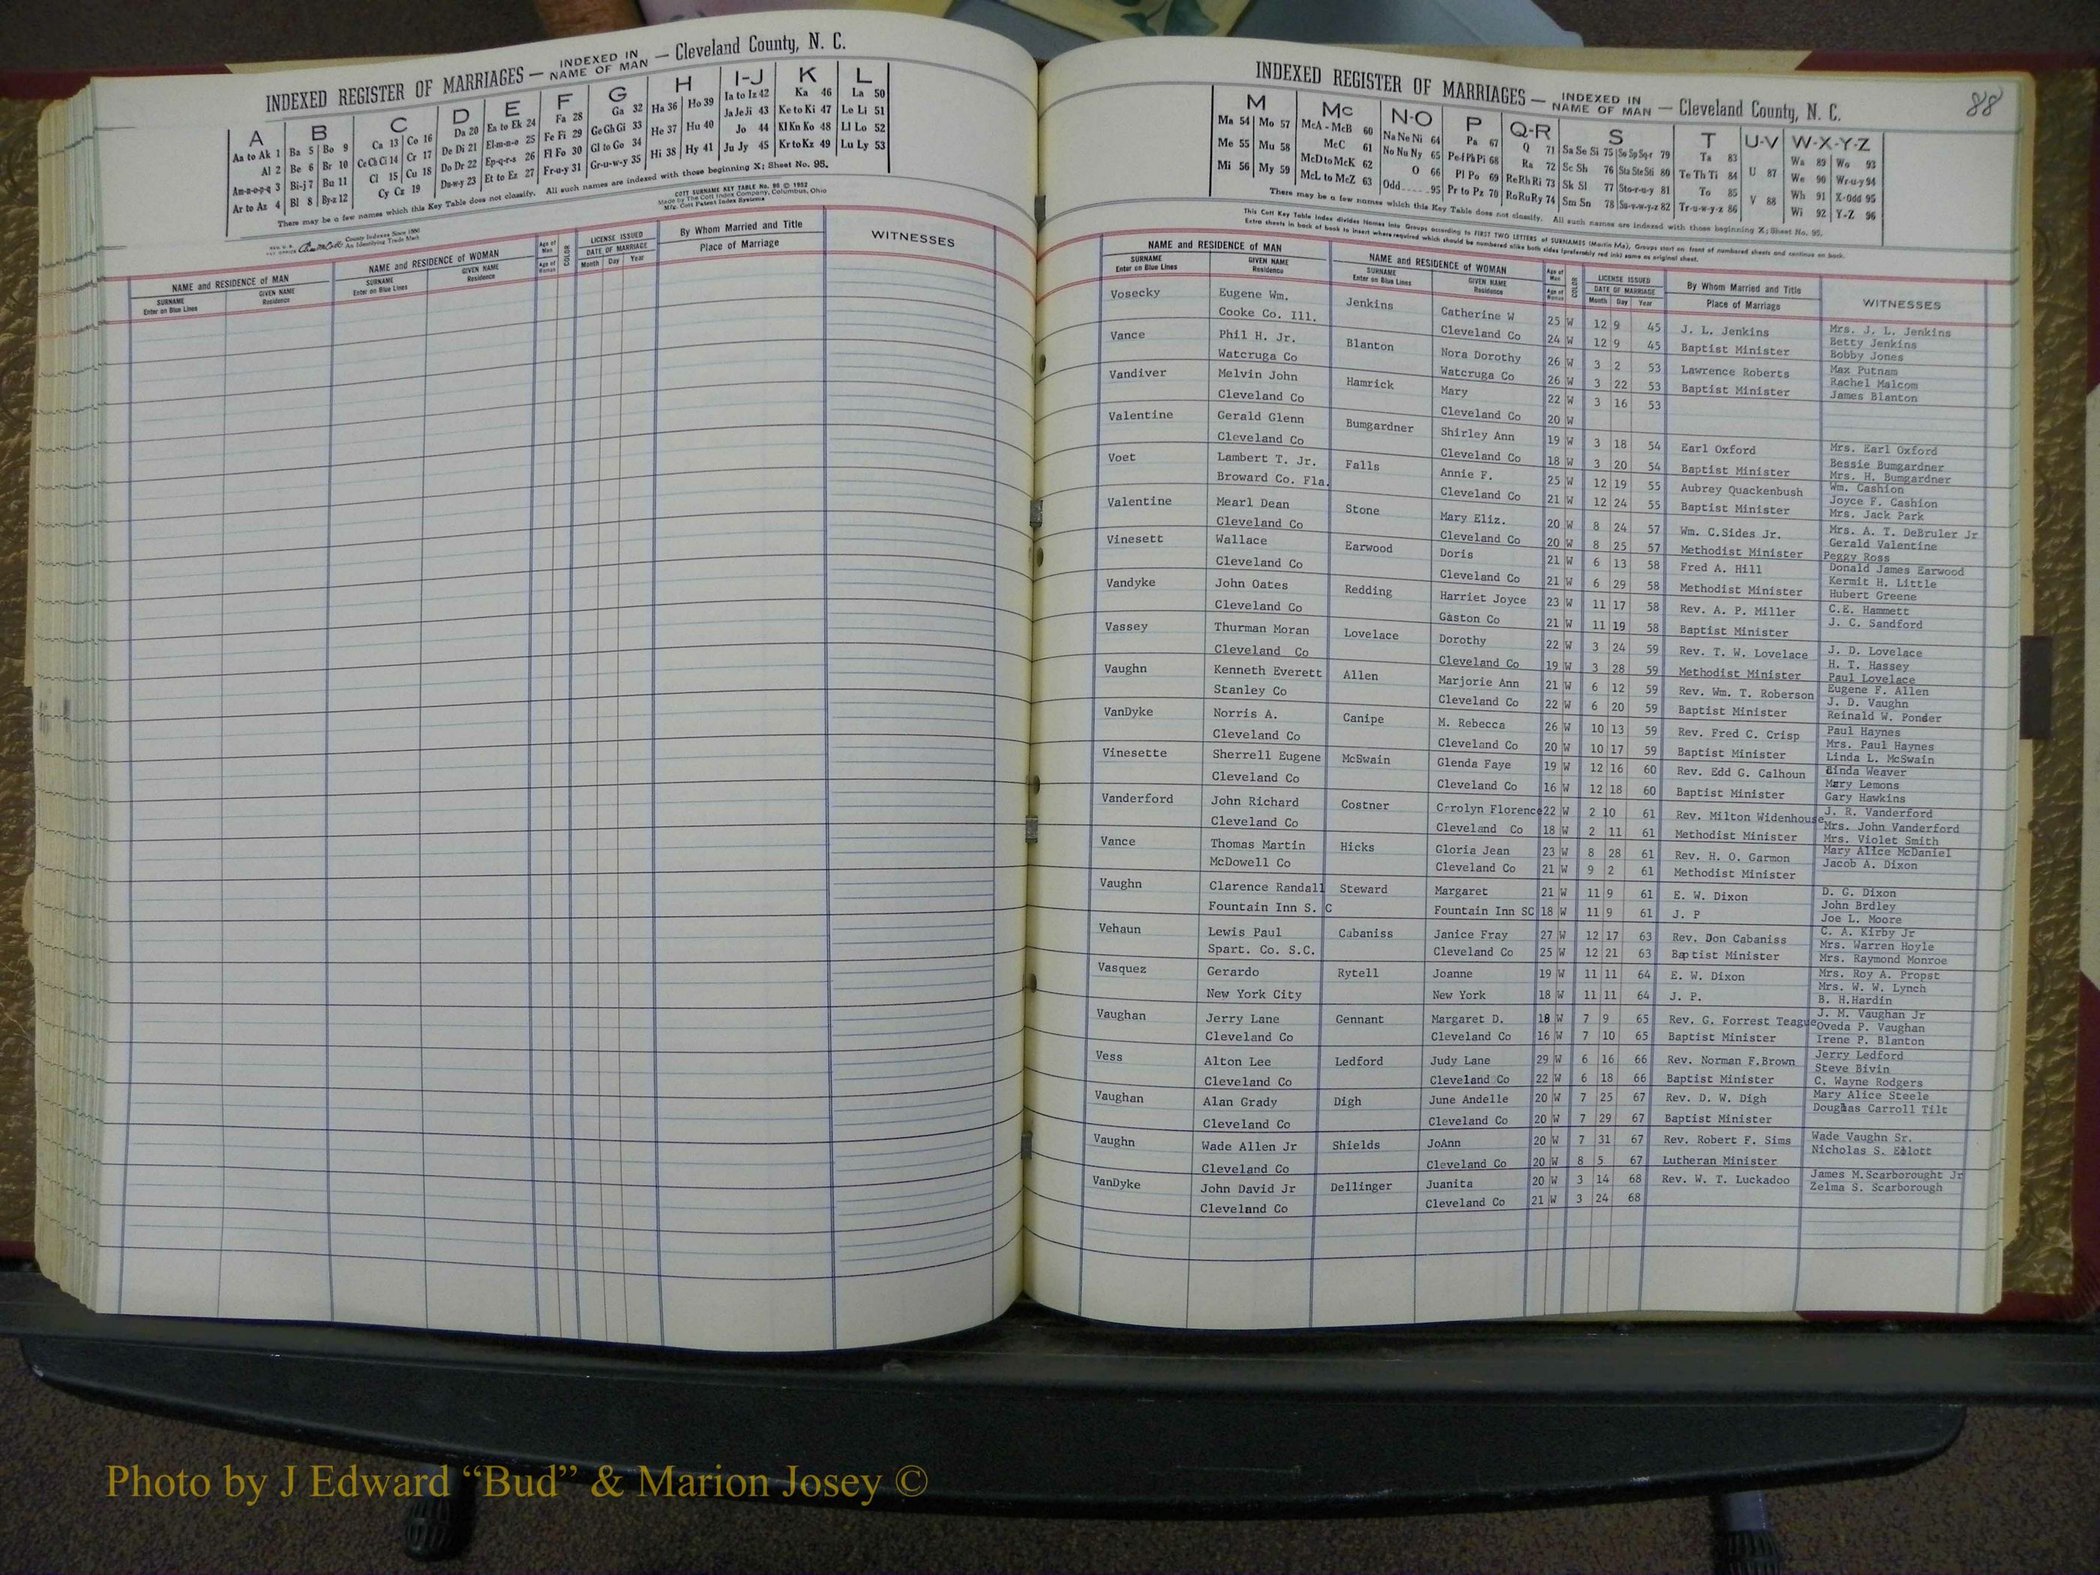 INDEXED REGISTER OF MARRIAGES — INDEXED IN NAME OF MAN — Cleveland County, N. C.
A B C D E F G H I-J K L
Aa to Ak 1 Ba 5 Bo 9 Ca 13 Co 16 Da 20 Ea to Ek 24 Fa 28 Ga 32 Ha 36 Ho 39 Ia to Iz 42 Ka 46 La 50
Al 2 Be 6 Br 10 Ce Ch Ci 14 Cr 17 De Di 21 El-m-n-o 25 Fe Fi 29 Ge Gh Gi 33 He 37 Hu 40 Ja Je Ji 43 Ke to Ki 47 Le Li 51
Am-n-o-p-q 3 Bi-j 7 Bu 11 Cl 15 Cu 18 Do Dr 22 Ep-q-r-s 26 Fl Fo 30 Gl to Go 34 Hi 38 Hy 41 Jo 44 Kl Kn Ko 48 Ll Lo 52
Ar to Az 4 Bl 8 By-z 12 Cy Cz 19 Du-w-y 23 Et to Ez 27 Fr-u-y 31 Gr-u-w-y 35 Ju Jy 45 Kr to Kz 49 Lu Ly 53
There may be a few names which this Key Table does not classify. All such names are indexed with those beginning X; Sheet No. 95.
COTT SURNAME KEY TABLE No. 96 © 1952
Made by The Cott Index Company, Columbus, Ohio
Mfg. Cott Patent Index Systems
County Indexes Since 1880
An Identifying Trade Mark
NAME and RESIDENCE OF MAN
SURNAME
Enter on Blue Lines
GIVEN NAME
Residence
NAME and RESIDENCE OF WOMAN
SURNAME
Enter on Blue Lines
GIVEN NAME
Residence
Age of Man
Age of Woman
COLOR
LICENSE ISSUED
DATE OF MARRIAGE
Month Day Year
By Whom Married and Title
Place of Marriage
WITNESSES
88
INDEXED REGISTER OF MARRIAGES — INDEXED IN NAME OF MAN — Cleveland County, N. C.
M Mc N-O P Q-R S T U-V W-X-Y-Z
Ma 54 Mo 57 McA - McB 60 Na Ne Ni 64 Pa 67 Q 71 Sa Se Si 75 So Sp Sq-r 79 Ta 83 U 87 Wa 89 Wo 93
Me 55 Mu 58 McC 61 No Nu Ny 65 Pe-f Ph Pi 68 Ra 72 Sc Sh 76 Sta Ste Sti 80 Te Th Ti 84 We 90 Wr-u-y 94
Mi 56 My 59 McD to McK 62 O 66 Pl Po 69 Re Rh Ri 73 Sk Sl 77 Sto-r-u-y 81 To 85 V 88 Wh 91 X-Odd 95
McL to McZ 63 Odd......95 Pr to Pz 70 Ro Ru Ry 74 Sm Sn 78 Su-v-w-y-z 82 Tr-u-w-y-z 86 Wi 92 Y-Z 96
There may be a few names which this Key Table does not classify. All such names are indexed with those beginning X; Sheet No. 95.
This Cott Key Table Index divides Names into Groups according to FIRST TWO LETTERS of SURNAMES (Martin Ma), Groups start on front of numbered sheets and continue on back.
Extra sheets in back of book to insert where required which should be numbered alike both sides (preferably red ink) same as original sheet.
NAME and RESIDENCE OF MAN
SURNAME
Enter on Blue Lines
GIVEN NAME
Residence
NAME and RESIDENCE OF WOMAN
SURNAME
Enter on Blue Lines
GIVEN NAME
Residence
Age of Man
Age of Woman
COLOR
LICENSE ISSUED
DATE OF MARRIAGE
Month Day Year
By Whom Married and Title
Place of Marriage
WITNESSES
Vosecky Eugene Wm. Jenkins Catherine W 25 W 12 9 45 J. L. Jenkins Mrs. J. L. Jenkins
Cooke Co. Ill. Cleveland Co 24 W 12 9 45 Baptist Minister Betty Jenkins
Bobby Jones
Vance Phil H. Jr. Blanton Nora Dorothy 26 W 3 2 53 Lawrence Roberts Max Putnam
Watcruga Co Watcruga Co 26 W 3 22 53 Baptist Minister Rachel Malcom
James Blanton
Vandiver Melvin John Hamrick Mary 22 W 3 16 53
Cleveland Co Cleveland Co 20 W
Valentine Gerald Glenn Bumgardner Shirley Ann 19 W 3 18 54 Earl Oxford Mrs. Earl Oxford
Cleveland Co Cleveland Co 18 W 3 20 54 Baptist Minister Bessie Bumgardner
Mrs. H. Bumgardner
Voet Lambert T. Jr. Falls Annie F. 25 W 12 19 55 Aubrey Quackenbush Wm. Cashion
Broward Co. Fla. Cleveland Co 21 W 12 24 55 Baptist Minister Joyce F. Cashion
Mrs. Jack Park
Valentine Mearl Dean Stone Mary Eliz. 20 W 8 24 57 Wm. C.Sides Jr. Mrs. A. T. DeBruler Jr
Cleveland Co Cleveland Co 20 W 8 25 57 Methodist Minister Gerald Valentine
Peggy Ross
Vinesett Wallace Earwood Doris 21 W 6 13 58 Fred A. Hill Donald James Earwood
Cleveland Co Cleveland Co 21 W 6 29 58 Methodist Minister Kermit H. Little
Hubert Greene
Vandyke John Oates Redding Harriet Joyce 23 W 11 17 58 Rev. A. P. Miller C.E. Hammett
Cleveland Co Gaston Co 21 W 11 19 58 Baptist Minister J. C. Sandford
Vassey Thurman Moran Lovelace Dorothy 22 W 3 24 59 Rev. T. W. Lovelace J. D. Lovelace
Cleveland Co Cleveland Co 19 W 3 28 59 Methodist Minister H. T. Hassey
Paul Lovelace
Vaughn Kenneth Everett Allen Marjorie Ann 21 W 6 12 59 Rev. Wm. T. Roberson Eugene F. Allen
Stanley Co Cleveland Co 22 W 6 20 59 Baptist Minister J. D. Vaughn
Reinald W. Ponder
VanDyke Norris A. Canipe M. Rebecca 26 W 10 13 59 Rev. Fred C. Crisp Paul Haynes
Cleveland Co Cleveland Co 20 W 10 17 59 Baptist Minister Mrs. Paul Haynes
Linda L. McSwain
Vinesette Sherrell Eugene McSwain Glenda Faye 19 W 12 16 60 Rev. Edd G. Calhoun Linda Weaver
Cleveland Co Cleveland Co 16 W 12 18 60 Baptist Minister Mary Lemons
Gary Hawkins
Vanderford John Richard Costner Carolyn Florence 22 W 2 10 61 Rev. Milton Widenhouse J. R. Vanderford
Cleveland Co Cleveland Co 18 W 2 11 61 Methodist Minister Mrs. John Vanderford
Mrs. Violet Smith
Vance Thomas Martin Hicks Gloria Jean 23 W 8 28 61 Rev. H. O. Garmon Mary Alice McDaniel
McDowell Co Cleveland Co 21 W 9 2 61 Methodist Minister Jacob A. Dixon
Vaughn Clarence Randall Steward Margaret 21 W 11 9 61 E. W. Dixon D. G. Dixon
Fountain Inn S. C Fountain Inn SC 18 W 11 9 61 J. P John Brdley
Joe L. Moore
Vehaun Lewis Paul Cabaniss Janice Fray 27 W 12 17 63 Rev. Don Cabaniss C. A. Kirby Jr
Spart. Co. S.C. Cleveland Co 25 W 12 21 63 Baptist Minister Mrs. Warren Hoyle
Mrs. Raymond Monroe
Vasquez Gerardo Rytell Joanne 19 W 11 11 64 E. W. Dixon Mrs. Roy A. Propst
New York City New York 18 W 11 11 64 J. P. Mrs. W. W. Lynch
B. H.Hardin
Vaughan Jerry Lane Gennant Margaret D. 18 W 7 9 65 Rev. G. Forrest Teague J. M. Vaughan Jr
Cleveland Co Cleveland Co 16 W 7 10 65 Baptist Minister Oveda P. Vaughan
Irene P. Blanton
Vess Alton Lee Ledford Judy Lane 29 W 6 16 66 Rev. Norman F.Brown Jerry Ledford
Steve Bivin
Cleveland Co Cleveland Co 22 W 6 18 66 Baptist Minister C. Wayne Rodgers
Vaughan Alan Grady Digh June Andelle 20 W 7 25 67 Rev. D. W. Digh Mary Alice Steele
Cleveland Co Cleveland Co 20 W 7 29 67 Baptist Minister Douglas Carroll Tilt
Vaughn Wade Allen Jr Shields JoAnn 20 W 7 31 67 Rev. Robert F. Sims Wade Vaughn Sr.
Cleveland Co Cleveland Co 20 W 8 5 67 Lutheran Minister Nicholas S.
VanDyke John David Jr Dellinger Juanita 20 W 3 14 68 Rev. W. T. Luckadoo James M.Scarborought Jr
Cleveland Co Cleveland Co 21 W 3 24 68 Zelma S. Scarborough
Photo by J Edward “Bud” & Marion Josey ©